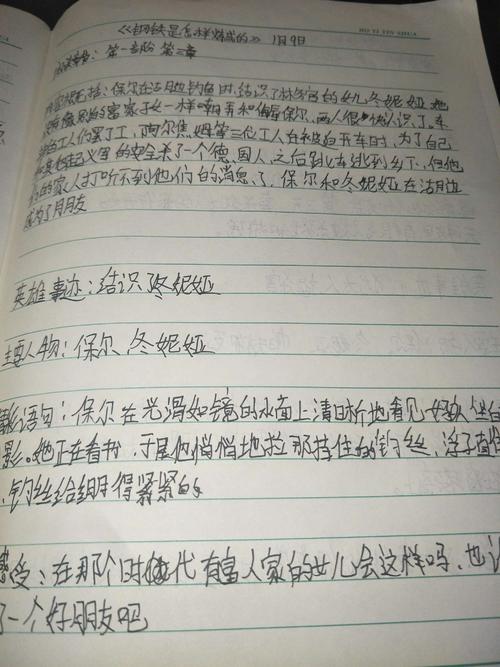 《钢铁是怎样炼成的》 1月9日
第一部 第三章
保尔在湖边钓鱼时,结识了林务官的女儿冬妮娅,她
没有像别的富家子女一样嘲弄和侮辱保尔,两人很快认识了。车
工人们罢了工,阿尔焦姆等三位工人在被迫开车时,为了自己
的安全杀了一个德国人,之后跳车逃到乡下,但他
的家人打听不到他们的消息了,保尔和冬妮娅在湖边
成为了朋友
英雄事迹:结识了冬妮娅
主要人物:保尔、冬妮娅
语句:保尔在光滑如镜的水面上清晰地看见女人坐
影。她正在看书,于是他悄悄地拉那挂住的钓丝,浮子直
,钓丝给绷得紧紧的。
感受:在那个时代有富人家的女儿会这样吗,也
了一个好朋友吧